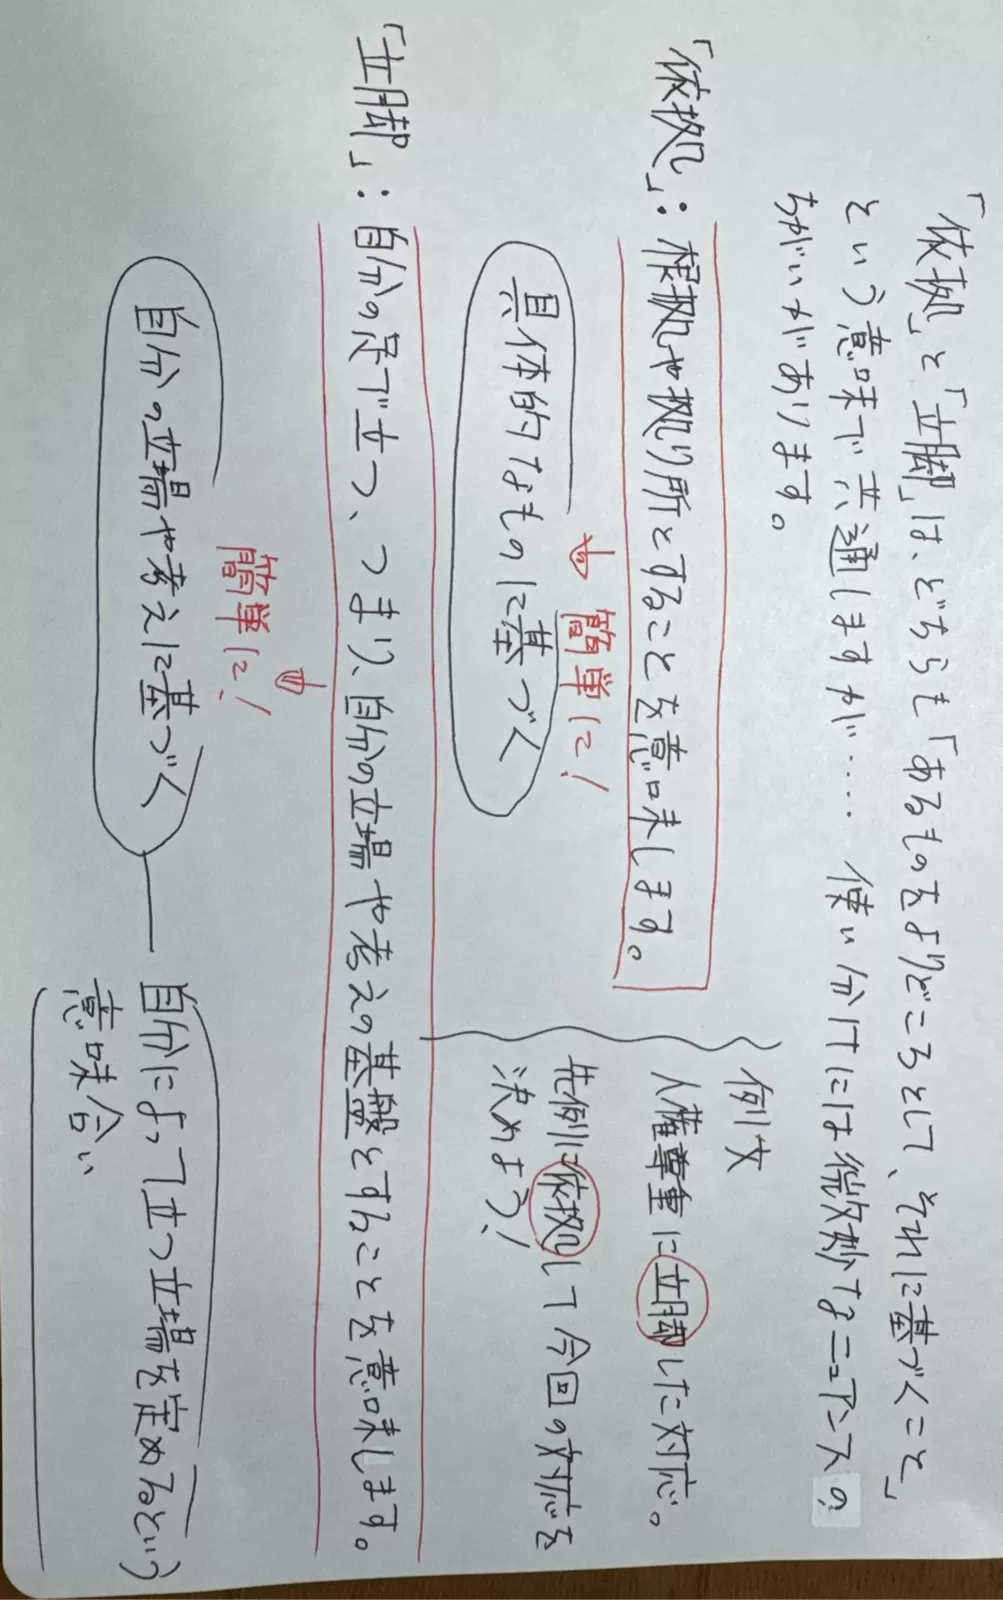 「依拠」と「立脚」は、どちらも「あるものをよりどころとして、それに基づくこと」
という意味で共通しますが……使い分けには微妙なニュアンスの
ちがいがあります。
「依拠」：根拠や拠り所とすることを意味します。
簡単に！
具体的なものに基づく
例文
人権尊重に立脚した対応。
先例に依拠して今回の対応を
決めよう！
「立脚」：自分の足で立つ、つまり、自分の立場や考えの基盤とすることを意味します。
簡単に！
自分の立場や考えに基づく
自分によって立つ立場を定めるという
意味合い